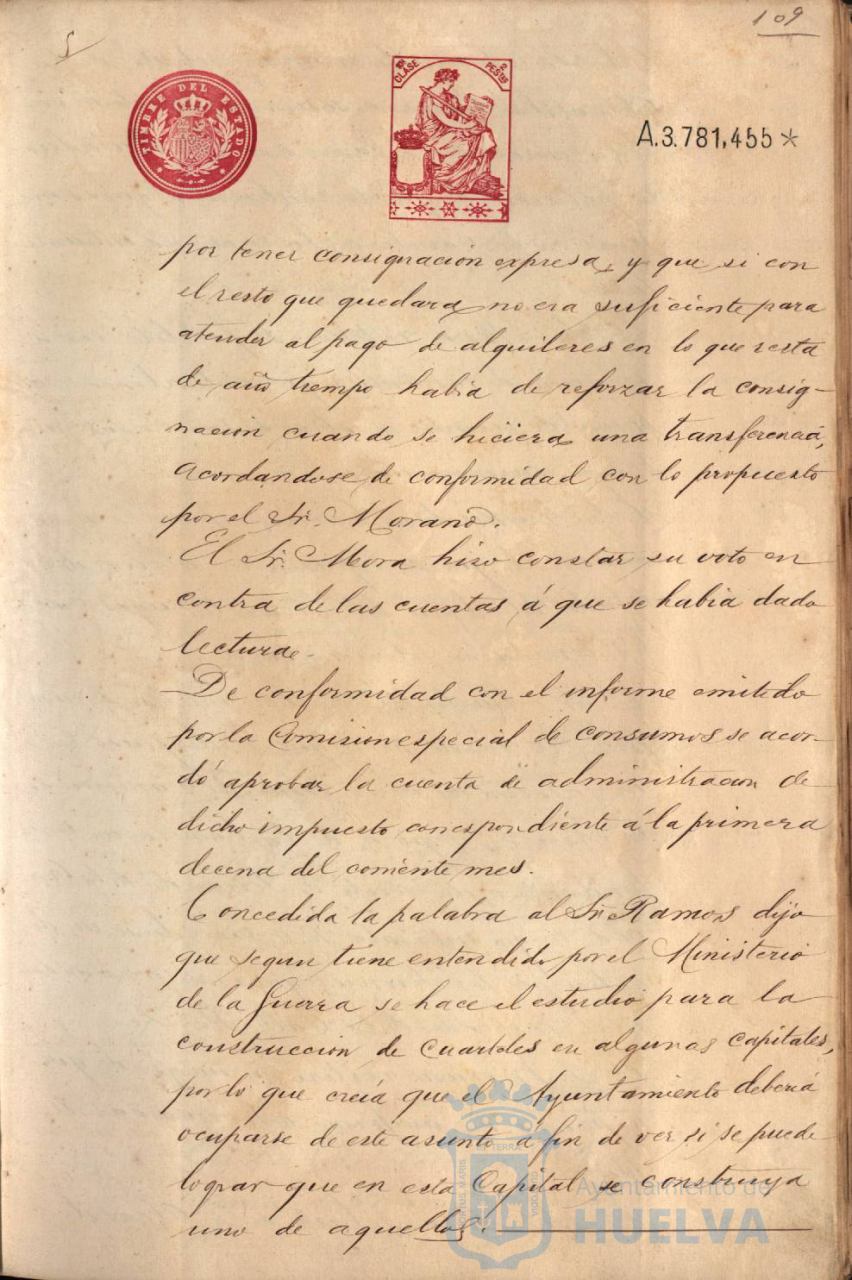 109
TIMBRE DEL ESTADO
CLASE
2 PESTAS
A.3.781,455*
por tener consignación expresa, y que si con
el resto que quedara no era suficiente para
atender al pago de alquileres en lo que resta
de año tiempo habia de reforzar la consig-
nacion cuando se hiciera una transferencia,
acordandose de conformidad con lo propuesto
por el Sr. Morano.
El Sr. Mora hiso constar su voto en
contra de las cuentas á que se habia dado
lectura.
De conformidad con el informe emitido
por la Comision especial de consumos se acor-
dó aprobar la cuenta de administracion de
dicho impuesto correspondiente á la primera
decena del corriente mes.
Concedida la palabra al Sr. Ramos dijo
que segun tiene entendido por el Ministerio
de la Guerra se hace el estudio para la
construccion de Cuarteles en algunas capitales,
por lo que creía que el Ayuntamiento deberia
ocuparse de este asunto á fin de ver si se puede
lograr que en esta Capital se construya
uno de aquellos.
Ayuntamiento de
HUELVA